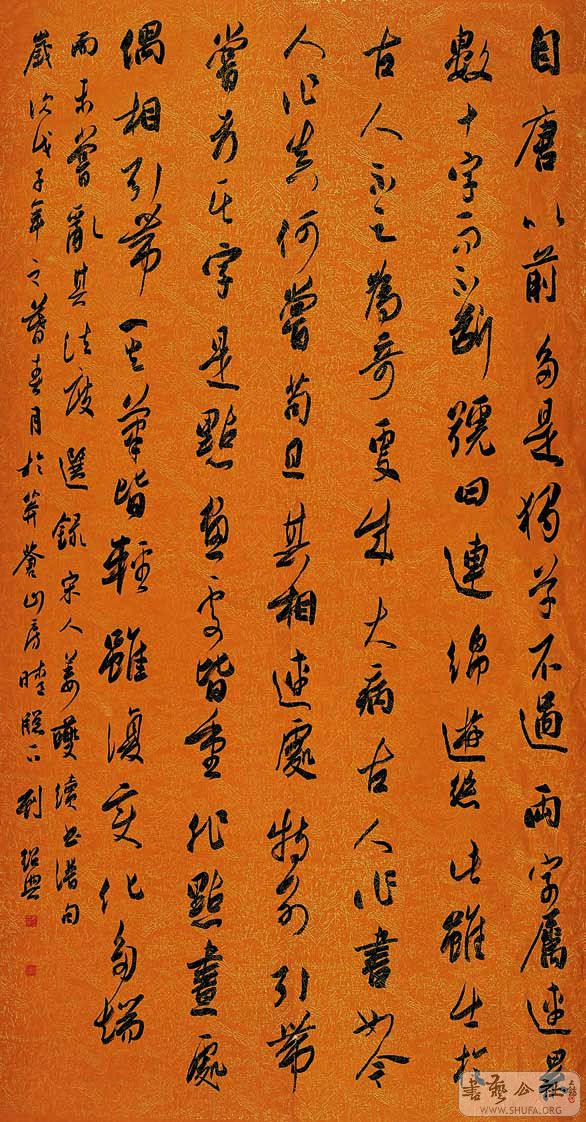 自唐以前多是獨草不過兩字屬連累
數十字而不斷號曰連綿遊絲此雖出於
古人不足為奇更成大病古人作書如今
人作真何嘗苟且其相連處特是引帶
嘗考其字是點畫處皆重非點畫處
偶相引帶其筆皆輕雖復變化多端
而未嘗亂其法度 選錄宋人姜夔續書譜句
歲次戊子年之暮春月於莽蒼山房晴牕下 劉紹典
書藝公社
WWW.SHUFA.ORG